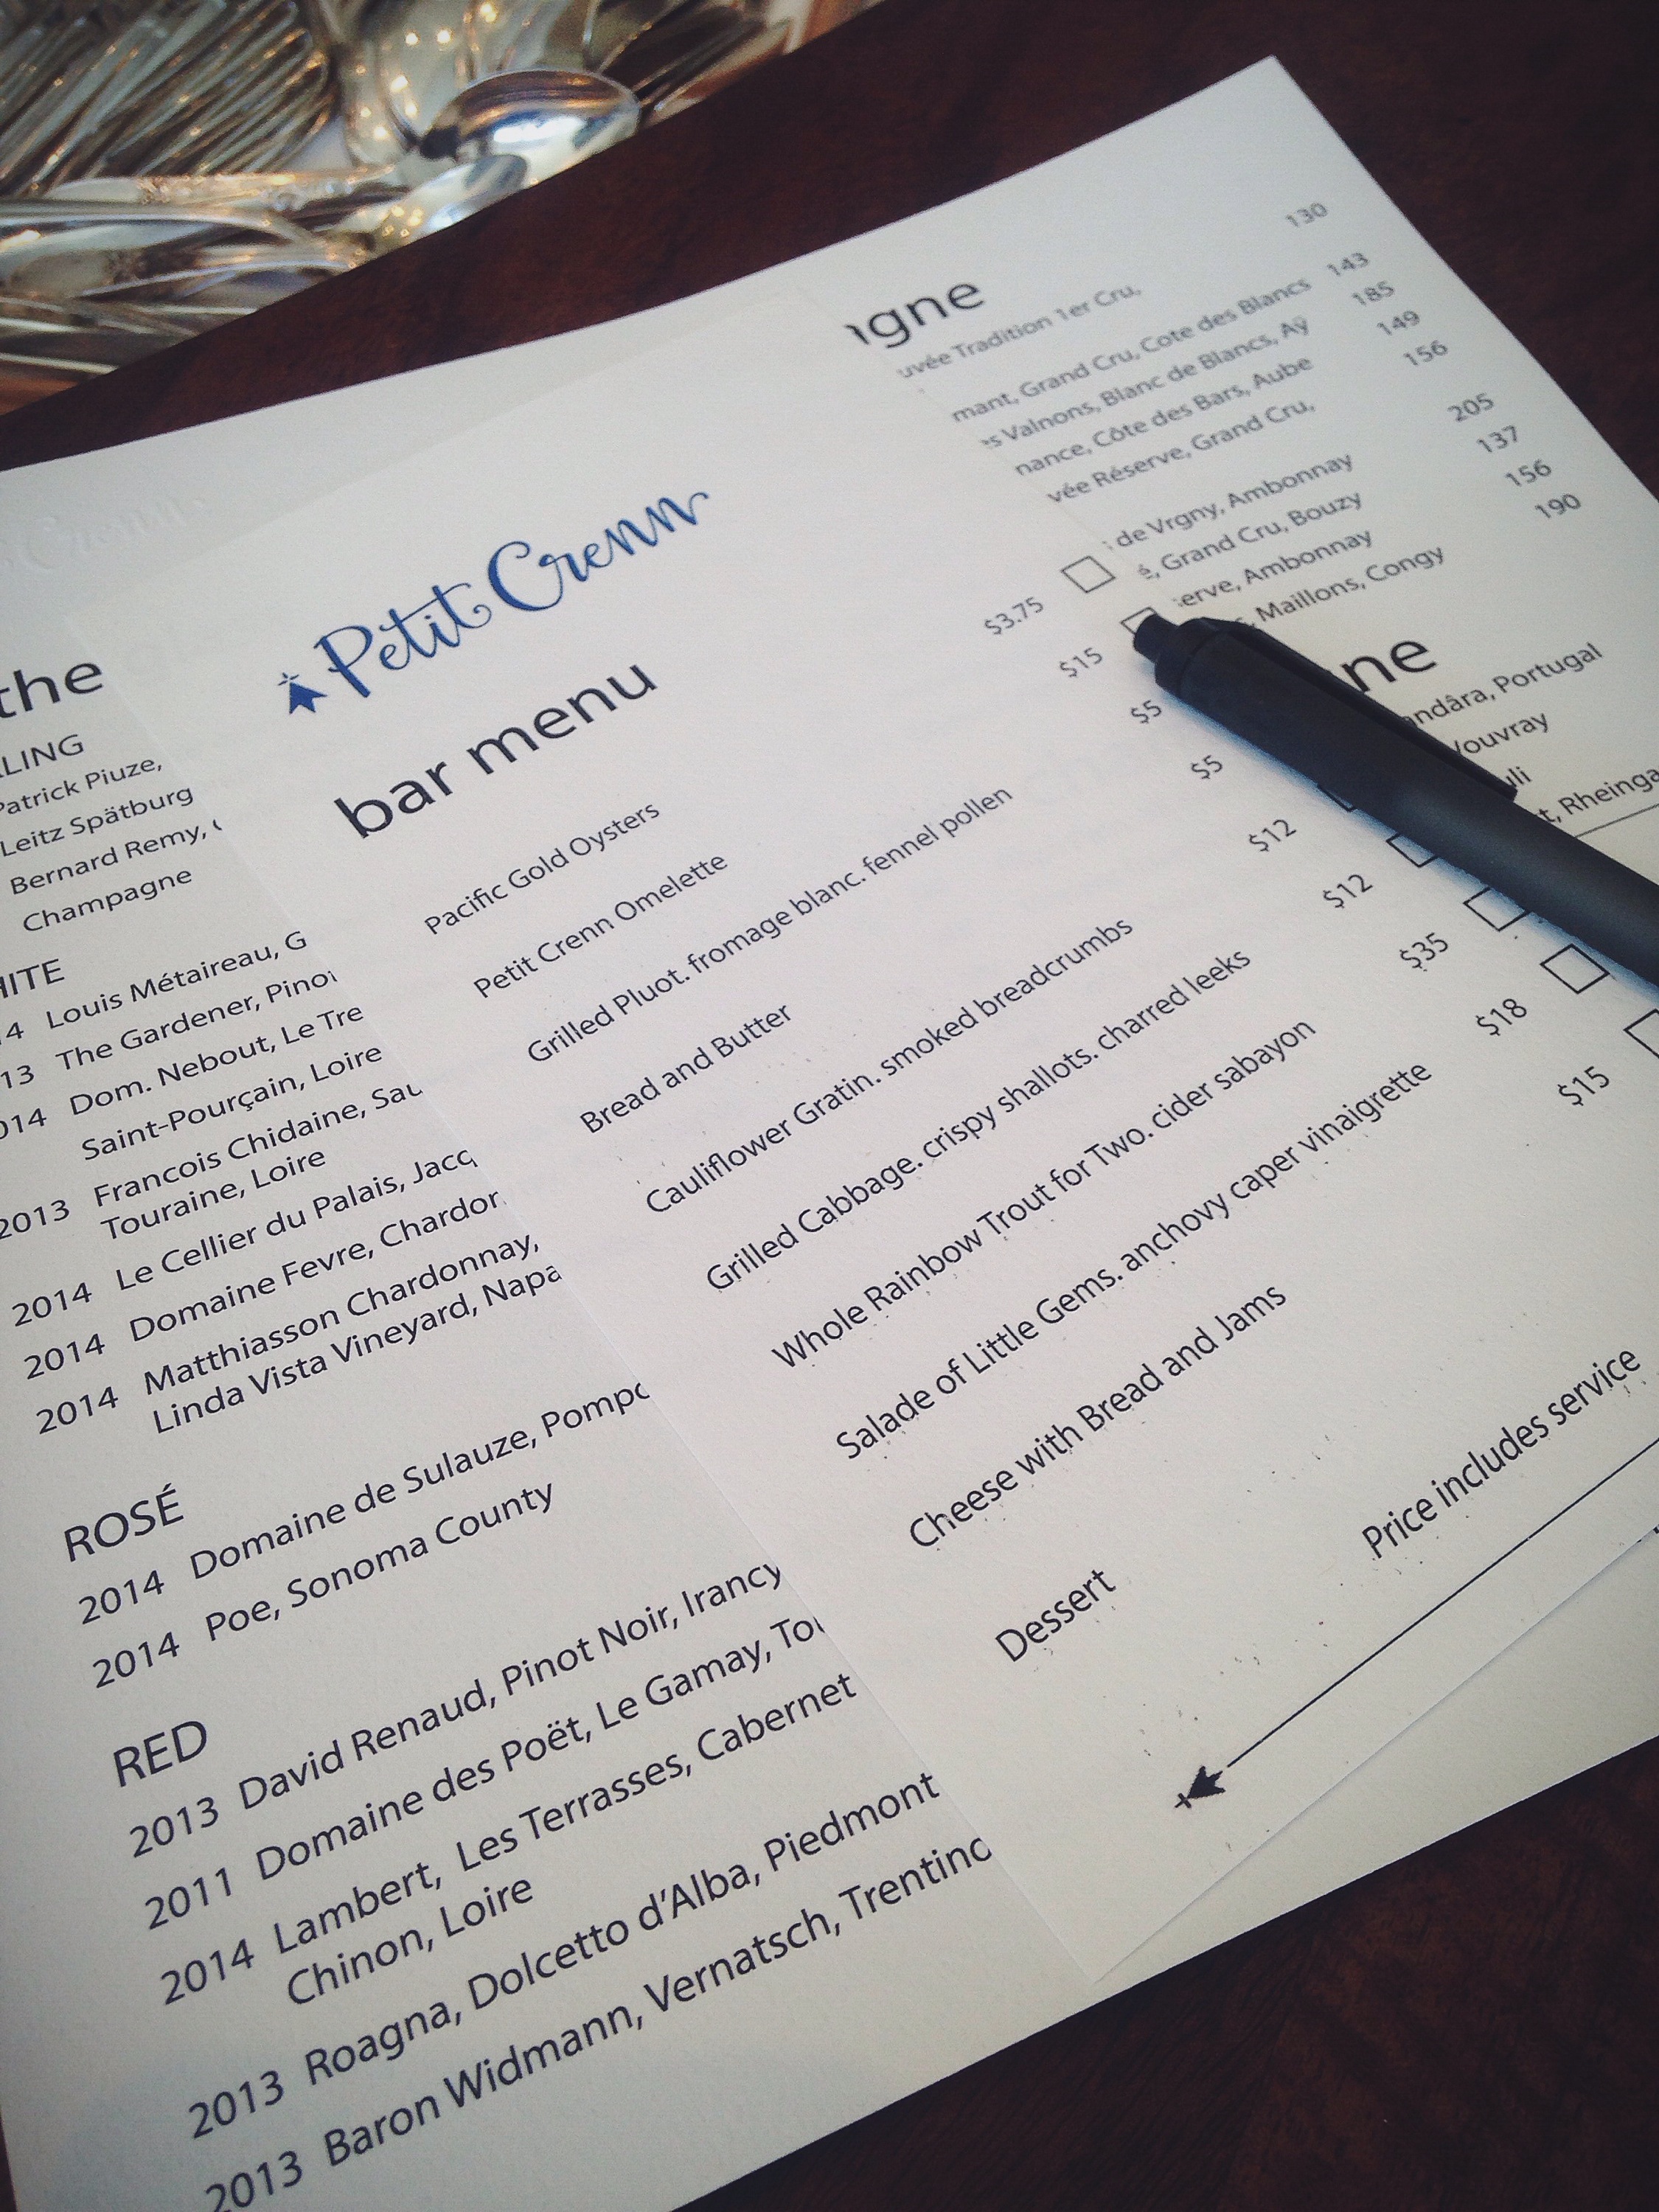 Petit Crenn
bar menu
Pacific Gold Oysters $3.75
Petit Crenn Omelette $15
Grilled Pluot. fromage blanc. fennel pollen $5
Bread and Butter $5
Cauliflower Gratin. smoked breadcrumbs $12
Grilled Cabbage. crispy shallots. charred leeks $12
Whole Rainbow Trout for Two. cider sabayon $35
Salade of Little Gems. anchovy caper vinaigrette $18
Cheese with Bread and Jams $15
Dessert
Price includes service
the
LING
Patrick Piuze,
Leitz Spätburg
Bernard Remy,
Champagne
HITE
14 Louis Métaireau, G
13 The Gardener, Pino
014 Dom. Nebout, Le Tre
Saint-Pourçain, Loire
2013 Francois Chidaine, Sau
Touraine, Loire
2014 Le Cellier du Palais, Jacq
2014 Domaine Fevre, Chardon
2014 Matthiasson Chardonnay,
Linda Vista Vineyard, Napa
ROSÉ
2014 Domaine de Sulauze, Pompo
2014 Poe, Sonoma County
RED
2013 David Renaud, Pinot Noir, Irancy
2011 Domaine des Poët, Le Gamay, To
2014 Lambert, Les Terrasses, Cabernet
Chinon, Loire
2013 Roagna, Dolcetto d'Alba, Piedmont
2013 Baron Widmann, Vernatsch, Trentino
igne
uvée Tradition 1er Cru, 130
mant, Grand Cru, Cote des Blancs 143
es Valnons, Blanc de Blancs, Aÿ 185
nance, Côte des Bars, Aube 149
vée Réserve, Grand Cru, 156
de Vrgny, Ambonnay 205
é, Grand Cru, Bouzy 137
erve, Ambonnay 156
Maillons, Congy 190
ne
andâra, Portugal
Vouvray
uli
t, Rheinga